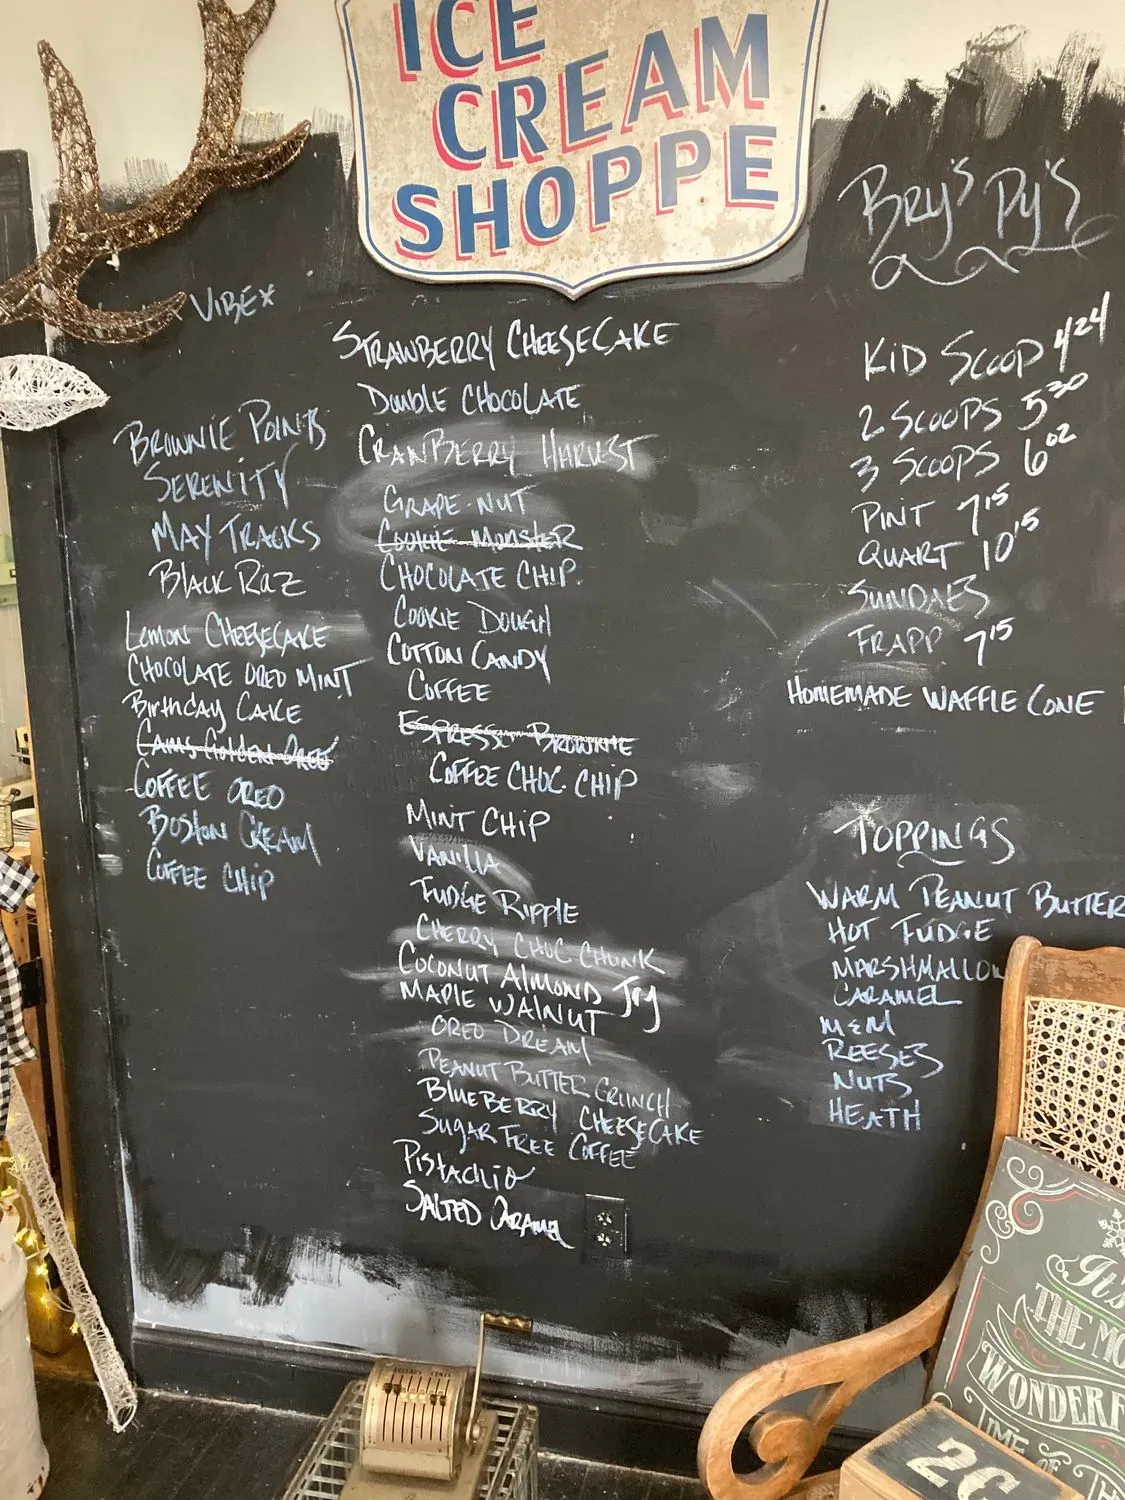 ICE
CREAM
SHOPPE
VIBE
BROWNIE POINTS
SERENITY
MAY TRACKS
BLACK RAZ
LEMON CHEESECAKE
CHOCOLATE OREO MINT
BirthdAy CAKE
CAM'S GOLDEN OREO
COFFEE OREO
BOSTON CREAM
COFFEE CHIP
STRAWBERRY CHEESECAKE
DOUBLE CHOCOLATE
CRANBERRY HARVEST
GRAPE-NUT
COOKIE MONSTER
CHOCOLATE CHIP
COOKIE DOUGH
COTTON CANDY
COFFEE
ESPRESSO BROWNIE
COFFEE CHOC. CHIP
MINT CHIP
VANILLA
FUDGE RIPPLE
CHERRY CHOC CHUNK
COCONUT ALMOND JOY
MAPLE WALNUT
OREO DREAM
PEANUT BUTTER CRUNCH
BLUEBERRY CHEESECAKE
SUGAR FREE COFFEE
PISTACHIO
SALTED CARAMEL
BRY'S PY'S
KID SCOOP 4 24
2 SCOOPS 5 30
3 SCOOPS 6 02
PINT 7 15
QUART 10 15
SUNDAES
FRAPP 7 15
HOMEMADE WAFFLE CONE
TOPPINGS
WARM PEANUT BUTTER
HOT FUDGE
MARSHMALLOW
CARAMEL
M&M
REESES
NUTS
HEATH
It's
THE MO
WONDERF
TIME OF TH